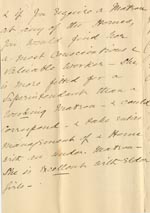 & if you require a Matron
at any of the Homes,
you would find her
a most conscientious &
valuable worker - She
is more fitted for a
Superintendent than a
working Matron - & could
correspond - & take entire
management of a Home
with an under Matron -
She is excellent with older
Girls -